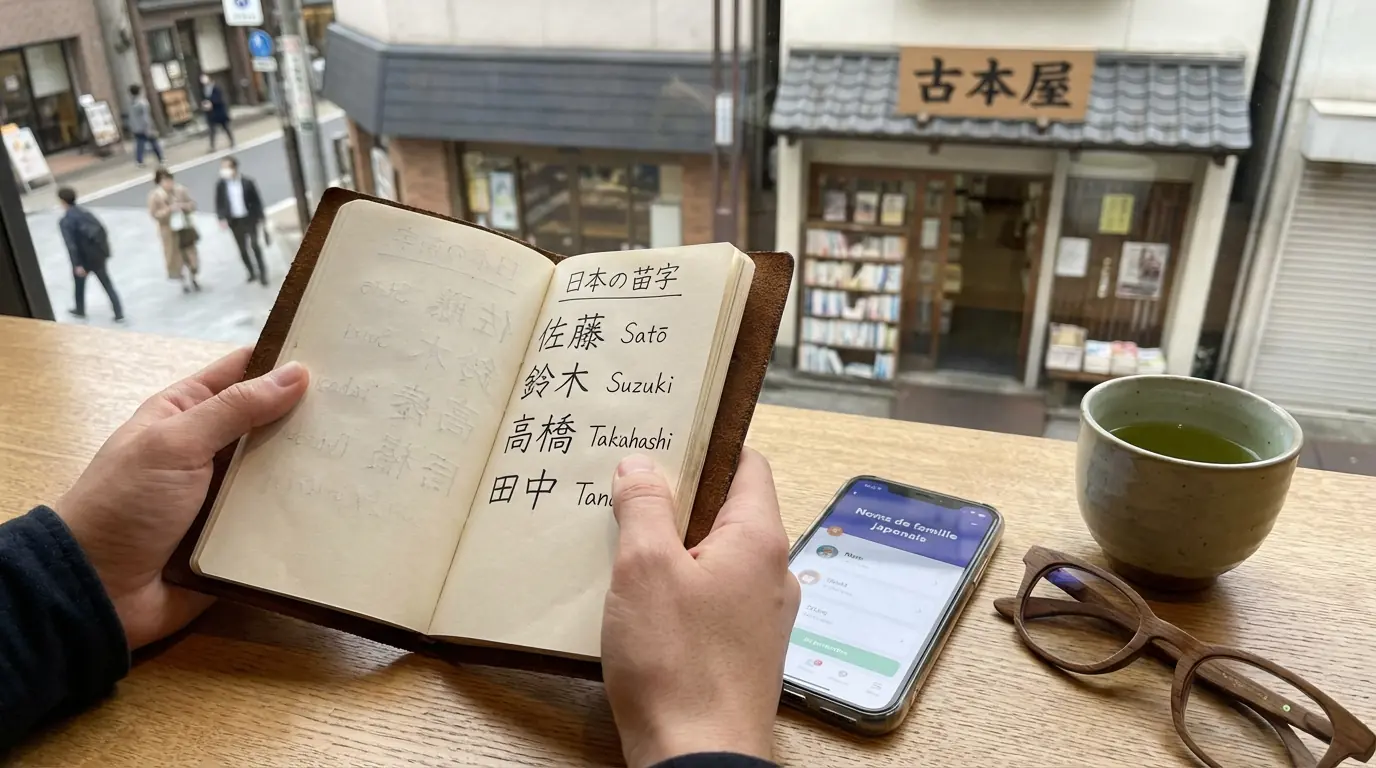 古本屋
日本の苗字
佐藤 Satō
鈴木 Suzuki
高橋 Takahashi
田中
Noms de famille
japonais